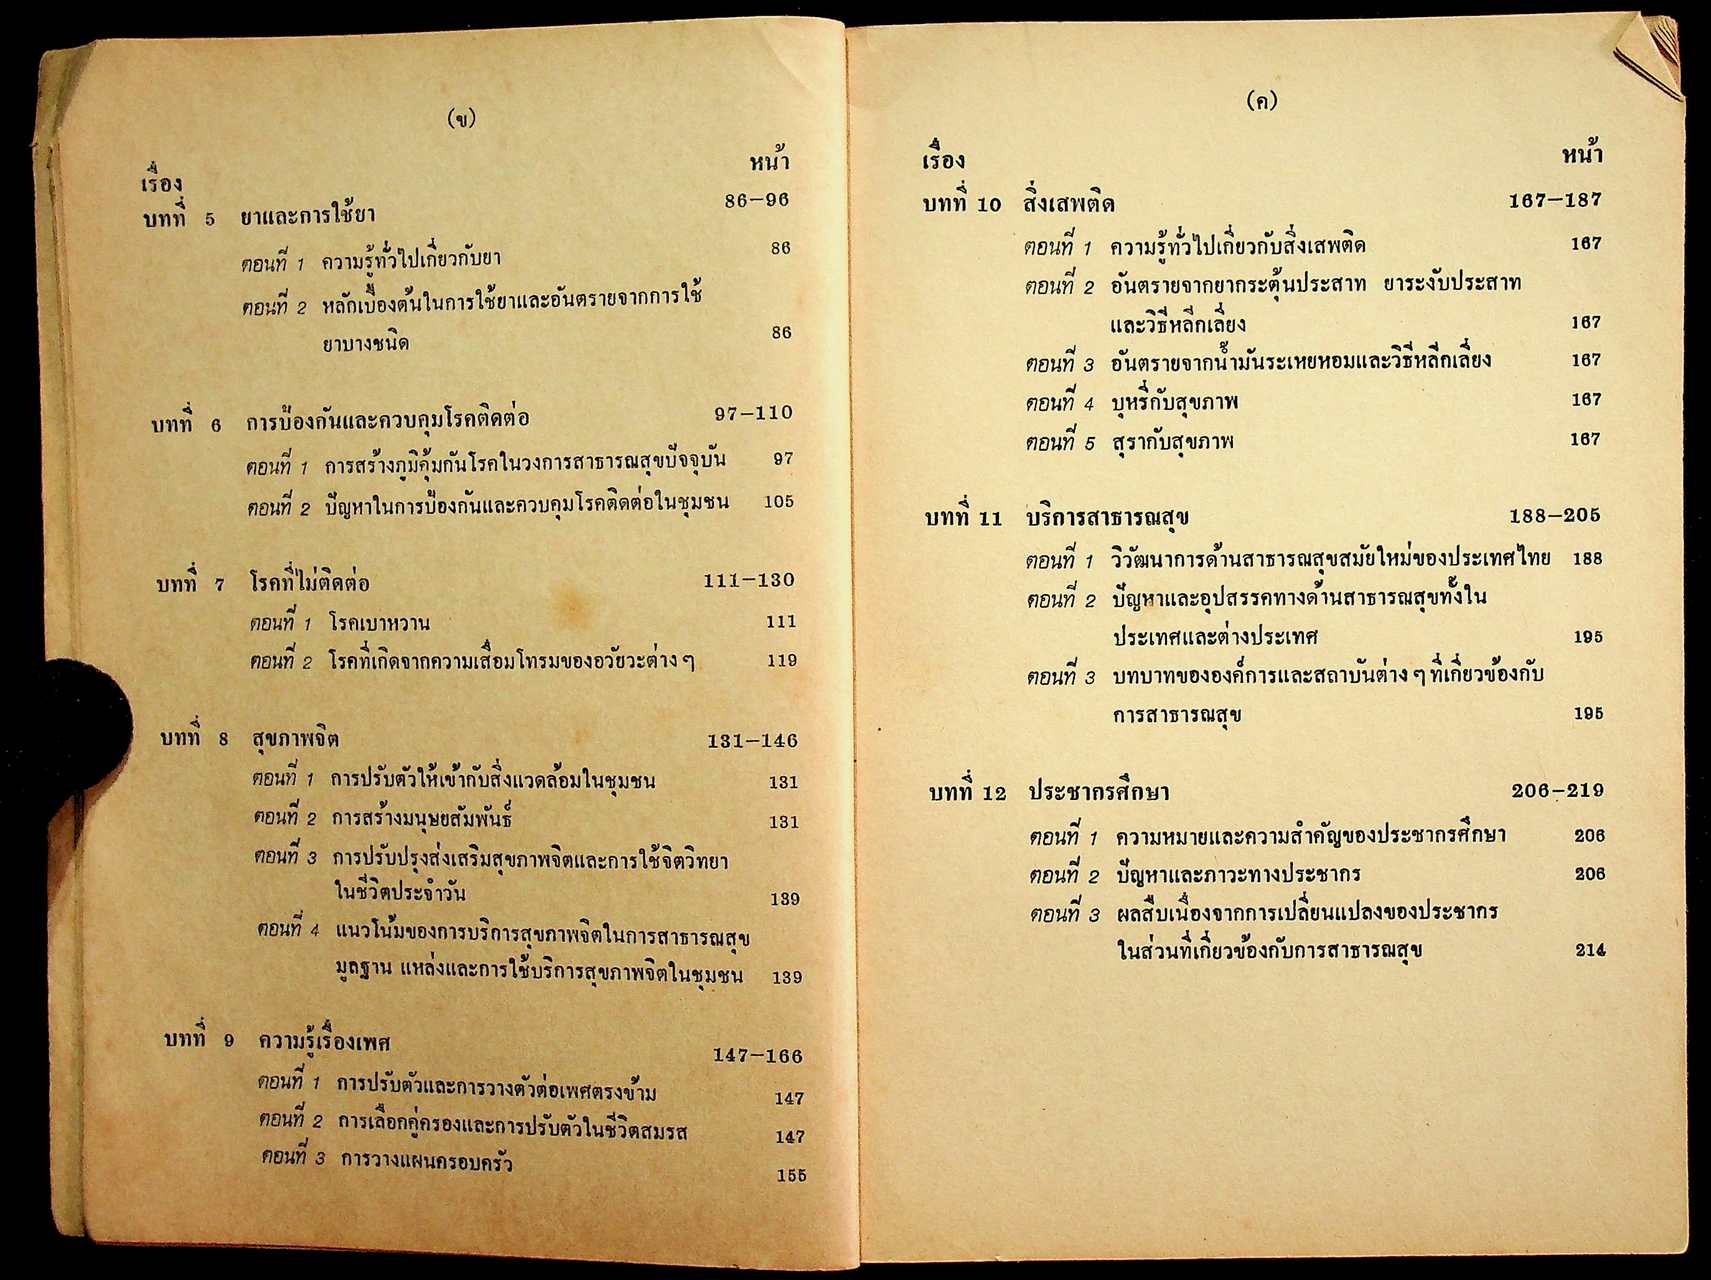 (ข)
เรื่อง หน้า
บทที่ 5 ยาและการใช้ยา 86–96
ตอนที่ 1 ความรู้ทั่วไปเกี่ยวกับยา 86
ตอนที่ 2 หลักเบื้องต้นในการใช้ยาและอันตรายจากการใช้
ยาบางชนิด 86
บทที่ 6 การป้องกันและควบคุมโรคติดต่อ 97–110
ตอนที่ 1 การสร้างภูมิคุ้มกันโรคในวงการสาธารณสุขปัจจุบัน 97
ตอนที่ 2 ปัญหาในการป้องกันและควบคุมโรคติดต่อในชุมชน 105
บทที่ 7 โรคที่ไม่ติดต่อ 111–130
ตอนที่ 1 โรคเบาหวาน 111
ตอนที่ 2 โรคที่เกิดจากความเสื่อมโทรมของอวัยวะต่าง ๆ 119
บทที่ 8 สุขภาพจิต 131–146
ตอนที่ 1 การปรับตัวให้เข้ากับสิ่งแวดล้อมในชุมชน 131
ตอนที่ 2 การสร้างมนุษยสัมพันธ์ 131
ตอนที่ 3 การปรับปรุงส่งเสริมสุขภาพจิตและการใช้จิตวิทยา
ในชีวิตประจำวัน 139
ตอนที่ 4 แนวโน้มของการบริการสุขภาพจิตในการสาธารณสุข
มูลฐาน แหล่งและการใช้บริการสุขภาพจิตในชุมชน 139
บทที่ 9 ความรู้เรื่องเพศ 147–166
ตอนที่ 1 การปรับตัวและการวางตัวต่อเพศตรงข้าม 147
ตอนที่ 2 การเลือกคู่ครองและการปรับตัวในชีวิตสมรส 147
ตอนที่ 3 การวางแผนครอบครัว 155
(ค)
เรื่อง หน้า
บทที่ 10 สิ่งเสพติด 167–187
ตอนที่ 1 ความรู้ทั่วไปเกี่ยวกับสิ่งเสพติด 167
ตอนที่ 2 อันตรายจากยากระตุ้นประสาท ยาระงับประสาท
และวิธีหลีกเลี่ยง 167
ตอนที่ 3 อันตรายจากน้ำมันระเหยหอมและวิธีหลีกเลี่ยง 167
ตอนที่ 4 บุหรี่กับสุขภาพ 167
ตอนที่ 5 สุรากับสุขภาพ 167
บทที่ 11 บริการสาธารณสุข 188–205
ตอนที่ 1 วิวัฒนาการด้านสาธารณสุขสมัยใหม่ของประเทศไทย 188
ตอนที่ 2 ปัญหาและอุปสรรคทางด้านสาธารณสุขทั้งใน
ประเทศและต่างประเทศ 195
ตอนที่ 3 บทบาทขององค์การและสถาบันต่าง ๆ ที่เกี่ยวข้องกับ
การสาธารณสุข 195
บทที่ 12 ประชากรศึกษา 206–219
ตอนที่ 1 ความหมายและความสำคัญของประชากรศึกษา 206
ตอนที่ 2 ปัญหาและภาวะทางประชากร 206
ตอนที่ 3 ผลสืบเนื่องจากการเปลี่ยนแปลงของประชากร
ในส่วนที่เกี่ยวข้องกับการสาธารณสุข 214